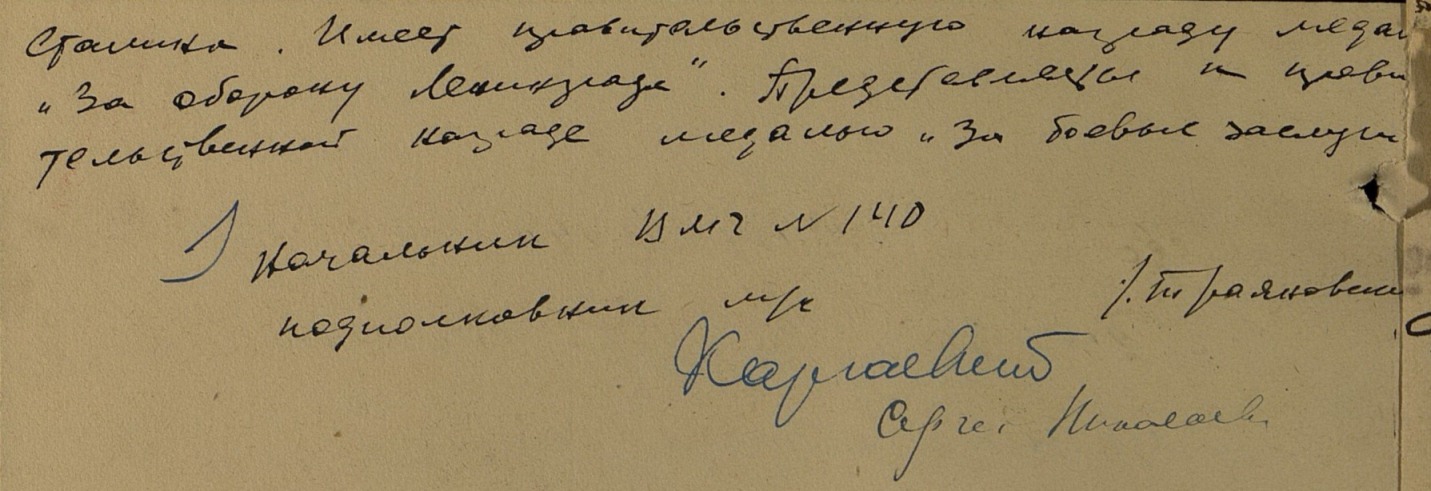 Сталина. Имеет правительственную награду медал
„За оборону Ленинграда". Представляется к прави
тельственной награде медалью „За боевые заслуги
Начальник ВМГ N 140
подполковник м/с
/. Траяновски
Сергей Николаеви